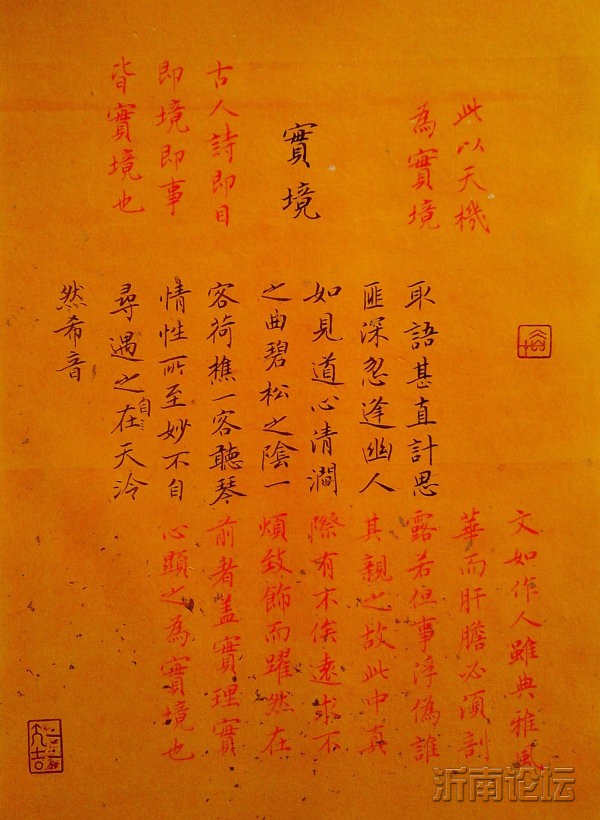 此以天機
為實境
實境
古人詩即目
即境即事
皆實境也
取語甚直計思
匪深忽逢幽人
如見道心清澗
之曲碧松之陰一
客荷樵一客聽琴
情性所至妙不自
尋遇之自在天泠
然希音
文如作人雖典雅風
華而肝膽必須剖
露若但事浮偽誰
其親之故此中真
際有不俟遠求不
煩致飾而躍然在
前者盖實理實
心顯之為實境也
沂南论坛